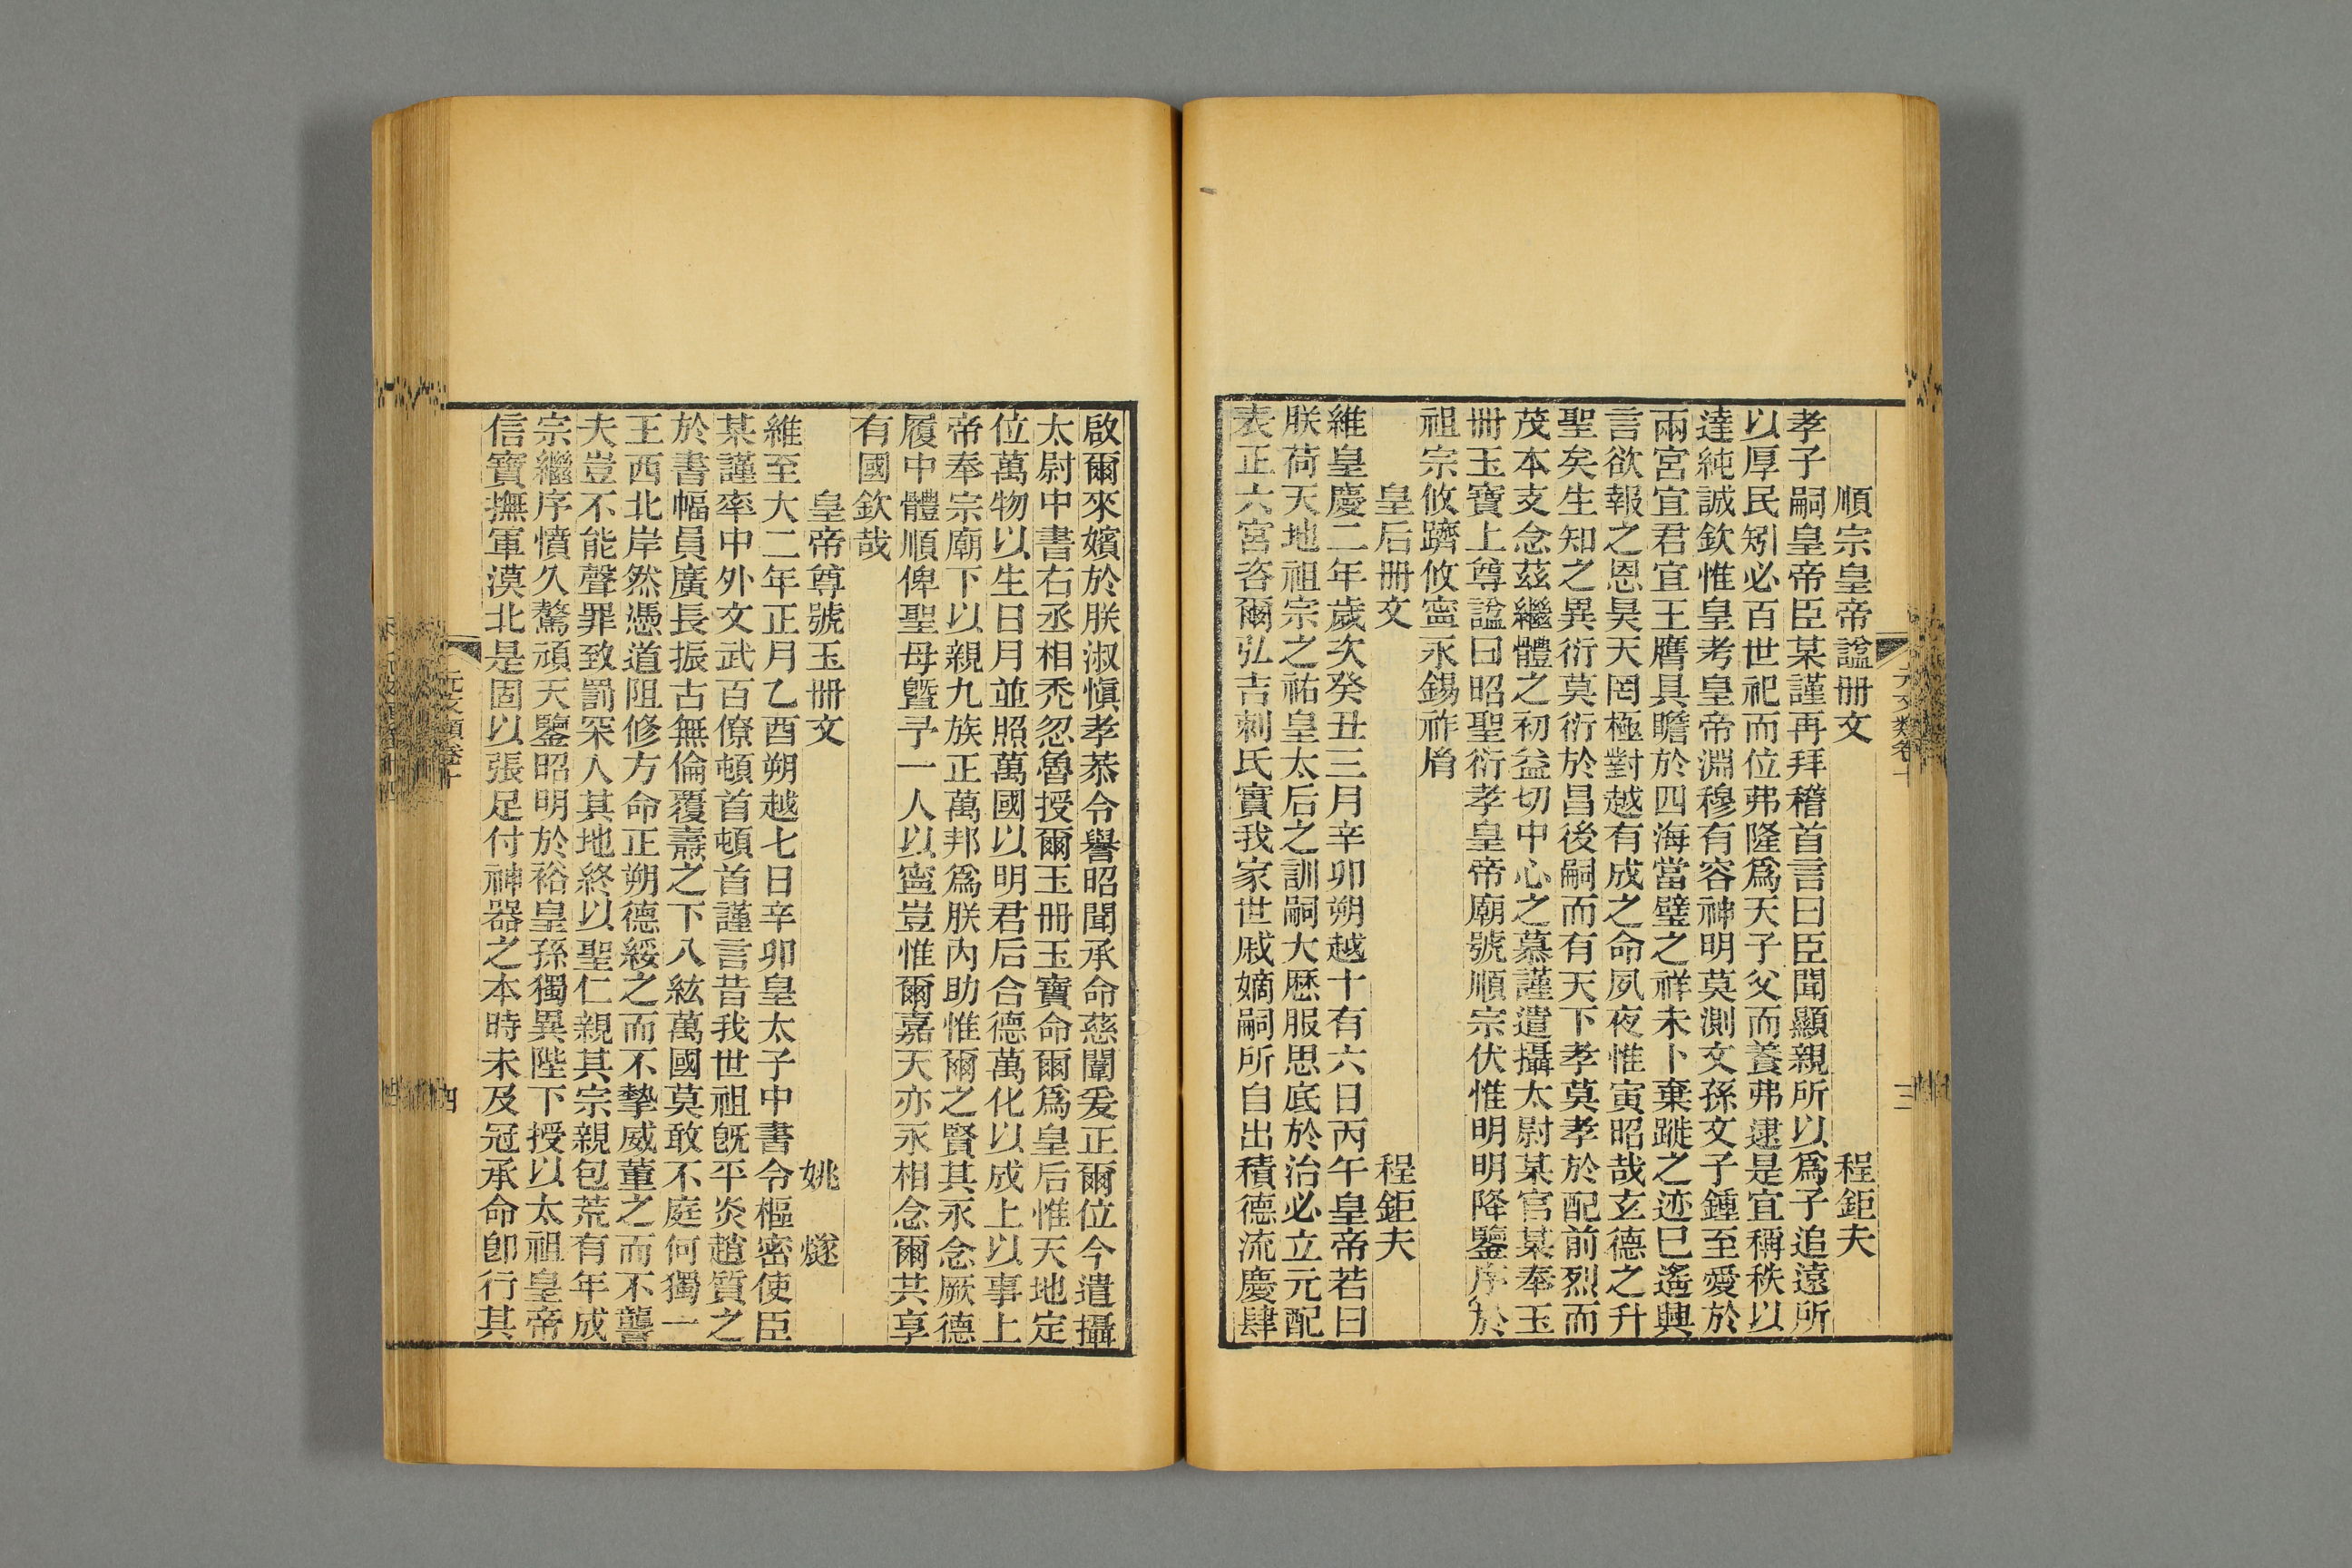 順宗皇帝諡冊文 程鉅夫
孝子嗣皇帝臣某謹再拜稽首言曰臣聞顯親所以爲子追遠所
以厚民矧必百世祀而位弗隆爲天子父而養弗逮是宜稱秩以
達純誠欽惟皇考皇帝淵穆有容神明莫測文孫文子鍾至愛於
兩宮宜君宜王膺具瞻於四海當璧之祥未卜棄蹝之迹巳遙興
言欲報之恩昊天罔極對越有成之命夙夜惟寅昭哉玄德之升
聖矣生知之異衍莫衍於昌後嗣而有天下孝莫孝於配前烈而
茂本支念茲繼體之初益切中心之慕謹遣攝太尉某官某奉玉
冊玉寶上尊諡曰昭聖衍孝皇帝廟號順宗伏惟明明降鑒序於
祖宗攸躋攸寧永錫祚胤
皇后冊文 程鉅夫
維皇慶二年歲次癸丑三月辛卯朔越十有六日丙午皇帝若曰
朕荷天地祖宗之祐皇太后之訓嗣大厯服思底於治必立元配
表正六宮咨爾弘吉剌氏實我家世戚嫡嗣所自出積德流慶肆
啟爾來嬪於朕淑愼孝恭令譽昭聞承命慈闈爰正爾位今遣攝
太尉中書右丞相禿忽魯授爾玉冊玉寶命爾爲皇后惟天地定
位萬物以生日月並照萬國以明君后合德萬化以成上以事上
帝奉宗廟下以親九族正萬邦爲朕內助惟爾之賢其永念厥德
履中體順俾聖母曁予一人以寧豈惟爾嘉天亦永相念爾其享
有國欽哉
皇帝尊號玉冊文 姚 燧
維至大二年正月乙酉朔越七日辛卯皇太子中書令樞密使臣
某謹率中外文武百僚頓首頓首謹言昔我世祖旣平炎趙質之
於書幅員廣長振古無倫覆燾之下八紘萬國莫敢不庭何獨一
王西北岸然憑道阻修方命正朔德綏之而不摯威董之而不讋
夫豈不能聲罪致罰罙入其地終以聖仁親其宗親包荒有年成
宗繼序憤久驁頑天鑒昭明於裕皇孫獨異陛下授以太祖皇帝
信寶撫軍漠北是固以張足付神器之本時未及冠承命卽行其
元文類卷十
四